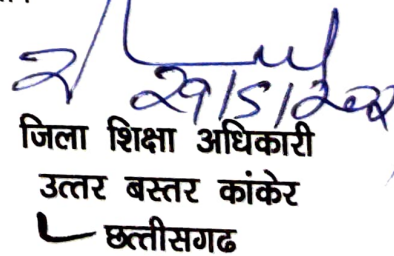 जिला शिक्षा अधिकारी
उत्तर बस्तर कांकेर
छत्तीसगढ